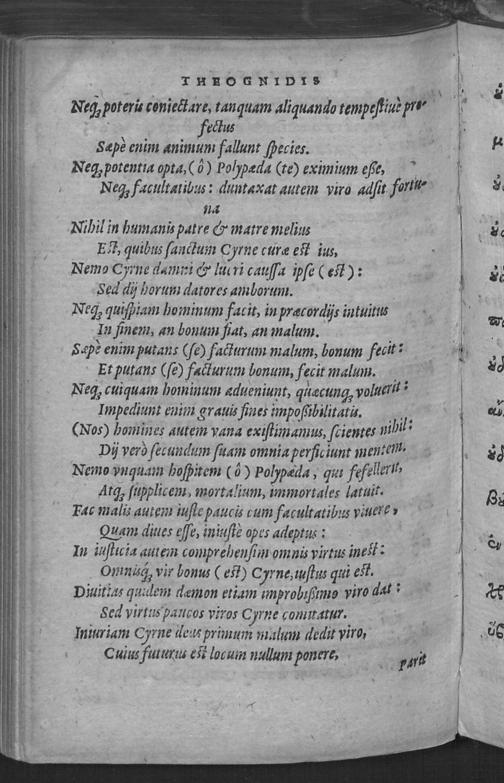 THEOGNIDIS
Neq́; poteris coniectare, tanquam aliquando tempestiuè pro-
fectus
Sæpè enim animum fallunt species.
Neq́; potentia opta, (ô) Polypæda (te) eximium esse,
Neq́; facultatibus: duntaxat autem viro adsit fortu-
na
Nihil in humanis patre & matre melius
Est, quibus sanctum Cyrne curæ est ius,
Nemo Cyrne damni & lucri caussa ipse (est):
Sed dij horum datores amborum.
Neq́; quispiam hominum facit, in præcordijs intuitus
In finem, an bonum fiat, an malum.
Sæpè enim putans (se) facturum malum, bonum fecit:
Et putans (se) facturum bonum, fecit malum.
Neq́; cuiquam hominum adueniunt, quæcunq́; voluerit:
Impediunt enim grauis fines impoßibilitatis.
(Nos) homines autem vana existimamus, scientes nihil:
Dij verò secundum suam omnia perficiunt mentem.
Nemo vnquam hospitem (ô) Polypæda, qui fefellerit,
Atq́; supplicem, mortalium, immortales latuit.
Fac malis autem iuste paucis cum facultatibus viuere,
Quam diues esse, iniustè opes adeptus:
In iusticia autem comprehensim omnis virtus inest:
Omnisq́; vir bonus (est) Cyrne, iustus qui est.
Diuitias quidem dæmon etiam improbißimo viro dat:
Sed virtus paucos viros Cyrne comitatur.
Iniuriam Cyrne deus primum malum dedit viro,
Cuius futurus est locum nullum ponere,
parit